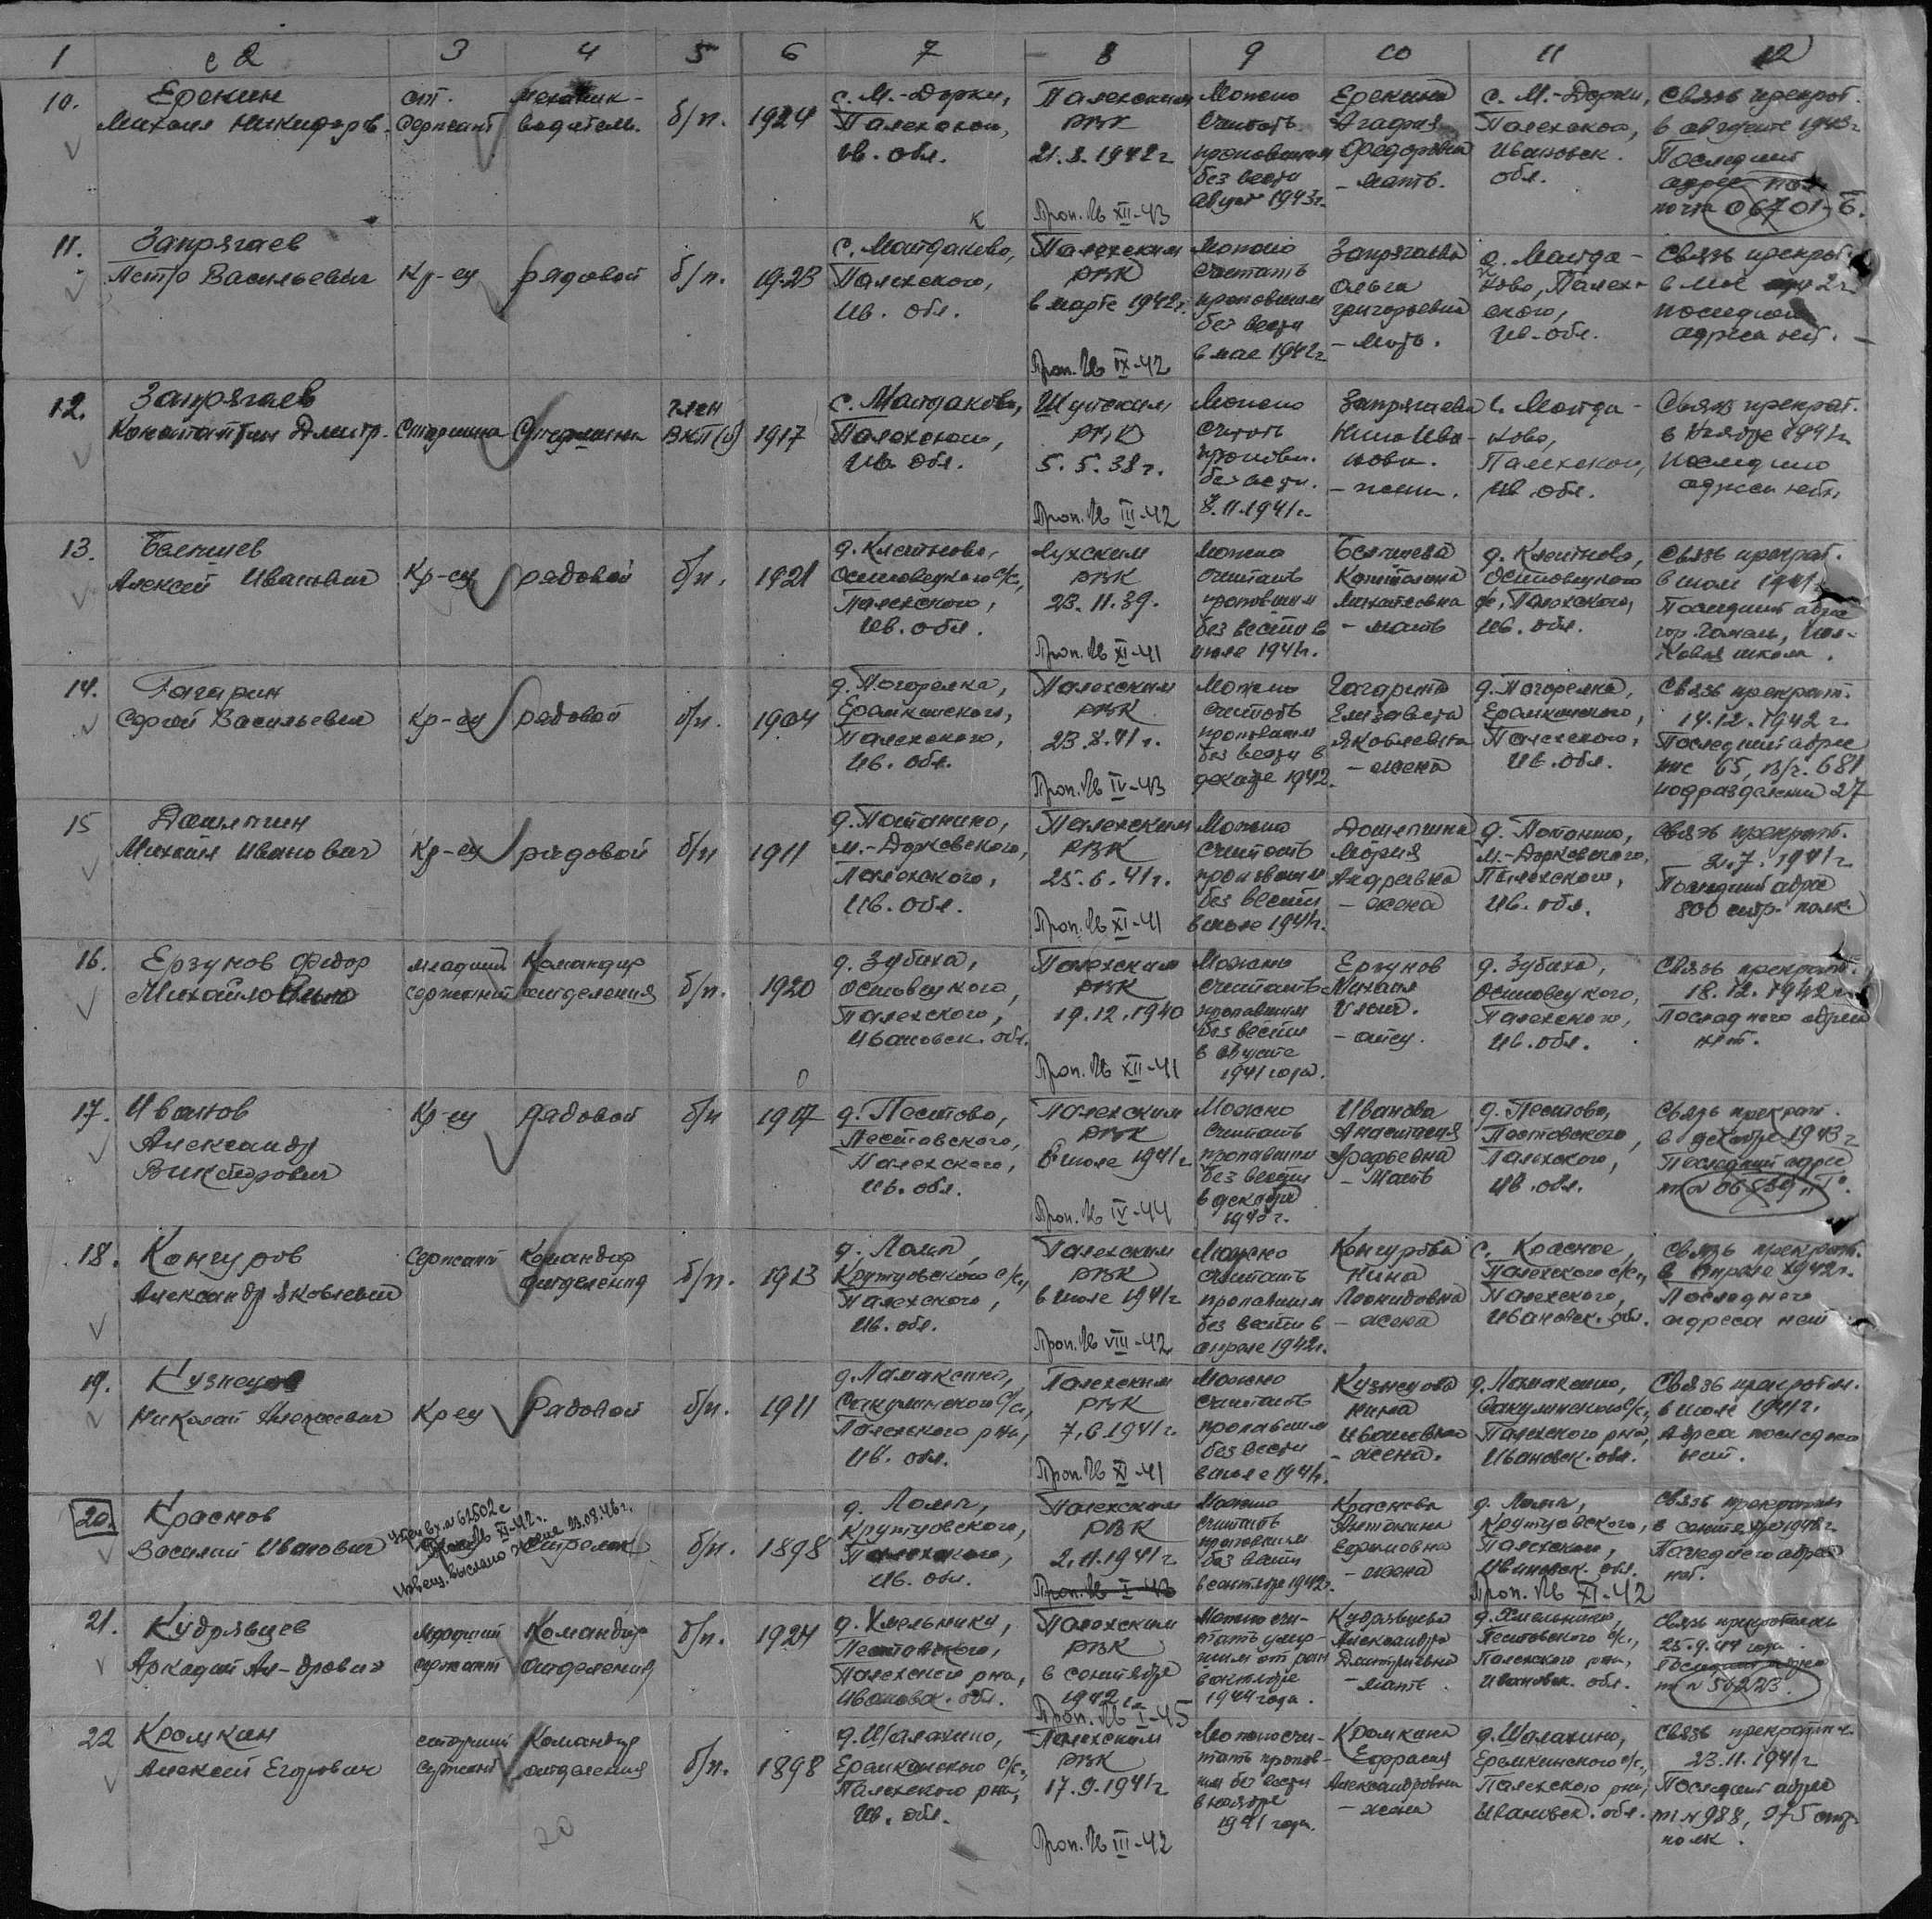 1 2 3 4 5 6 7 8 9 10 11 12
10.
Еремин
Михаил Никифоров.
ст.
сержант
механик-
водитель.
б/п.
1924
с. М.-Дорки,
Палехского,
Ив. обл.
Палехским
РВК
21.8.1942 г
Проп. Ив XII-43
Можно
считать
пропавшим
без вести
август 1943 г.
Еремина
Агафья
Федоровна
- мать.
с. М.-Дорки,
Палехского,
Ивановск.
обл.
Связь прекрат.
в августе 1943 г
Последний
адрес пол.
почта 06701-Б.
11.
Запрягаев
Петр Васильевич
Кр-ец
рядовой
б/п.
1923
с. Майдаково,
Палехского,
Ив. обл.
Палехским
РВК
в марте 1942 г.
Проп. Ив IX-42
Можно
считать
пропавшим
без вести
в мае 1942 г
Запрягаева
Ольга
Григорьевна
- мать.
с. Майда-
ково, Палех-
ского,
Ив. обл.
Связь прекрат.
в мае
последнего
адреса нет.
12.
Запрягаев
Константин Дмитр.
Старшина
Старшина
член
ВКП(б)
1917
с. Майдаково,
Палехского,
Ив. обл.
Шуйским
РВК
5.5.38 г.
Проп. Ив III-42
Можно
считать
пропавш.
без вести.
8.11.1941 г.
Запрягаева
Нина Ива-
новн.
- жена.
с. Майда-
ково,
Палехского,
Ив. обл.
Связь прекрат.
в ноябре 1941 г
последнего
адреса нет.
13.
Алексей Иванович
Кр-ец
рядовой
б/п.
1921
д. Клетново,
Осиновецкого с/с,
Палехского,
Ив. обл.
Лухским
РВК
23.11.39.
Проп. Ив XI-41
можно
считать
пропавшим
без вести в
июле 1941 г.
Капитолина
Михайловна
- мать
д. Клетново,
Осиновецкого
с/с, Палехского,
Ив. обл.
Связь прекрат.
в июле 1941 г
Последний адрес
гор. Гомель, пол-
ковая школа.
14.
Гагарин
Сергей Васильевич
Кр-ец
рядовой
б/п.
1904
д. Погорелка,
Еремкинского,
Палехского,
Ив. обл.
Палехским
РВК
23.8.41 г.
Проп. Ив IV-43
Можно
считать
пропавшим
без вести в
декабре 1942.
Гагарина
Елизавета
Яковлевна
- жена
д. Погорелка,
Еремкинского,
Палехского,
Ив. обл.
Связь прекрат.
14.12.1942 г.
Последний адрес
ппс 65, п/я. 681
подразделение 27
15
Дашпгин
Михаил Иванович
Кр-ец
рядовой
б/п
1911
д. Потанино,
М.-Дорковского,
Палехского,
Ив. обл.
Палехским
РВК
25.6.41 г.
Проп. Ив XI-41
Можно
считать
пропавшим
без вести
в июле 1941 г.
Мария
Андреевна
- жена
д. Потанино,
М.-Дорковского,
Палехского,
Ив. обл.
Связь прекрат.
2.7.1941 г
Последний адрес
800 стр. полк
16.
Ерзунов Федор
Михайлович
младший
сержант
Командир
отделения
б/п.
1920
д. Зубиха,
Осиновецкого,
Палехского,
Ивановск. обл.
Палехским
РВК
19.12.1940
Проп. Ив XII-41
Можно
считать
пропавшим
без вести
в августе
1941 года.
Ерзунов
Михаил
Ильич.
- отец.
д. Зубиха,
Осиновецкого,
Палехского,
Ив. обл.
Связь прекрат.
18.12.1942 г
Последнего адреса
нет.
17.
Иванов
Александр
Викторович
Кр-ец
рядовой
б/п
1917
д. Пестово,
Пестовского,
Палехского,
Ив. обл.
Палехским
РВК
в июле 1941 г
Проп. Ив IV-44
Можно
считать
пропавшим
без вести
в декабре
1943 г.
Иванова
Анастасия
Арефьевна
- мать
д. Пестово,
Пестовского,
Палехского,
Ив. обл.
Связь прекрат.
в декабре 1943 г
Последний адрес
18.
Кангуров
Александр Яковлевич
Сержант
Командир
отделения
б/п.
1913
д. Ломы
Крутцовского с/с,
Палехского,
Ив. обл.
Палехским
РВК
в июле 1941 г
Проп. Ив VIII-42
Можно
считать
пропавшим
без вести в
апреле 1942 г.
Кангурова
Нина
Леонидовна
- жена
с. Красное,
Палехского с/с,
Палехского,
Ивановск. обл.
Связь прекрат.
в апреле 1942 г.
Последнего
адреса нет
19.
Кузнецов
Николай Алексеевич
Кр-ец
рядовой
б/п.
1911
д. Ламакино,
Сакулинского с/с,
Палехского р-на,
Ив. обл.
Палехским
РВК
7.6.1941 г.
Проп. Ив XI-41
Можно
считать
пропавшим
без вести
в июле 1941 г.
Кузнецова
Нина
Ивановна
- жена.
д. Ламакино,
Сакулинского с/с,
Палехского р-на,
Ивановск. обл.
Связь прекратил.
в июле 1941 г.
Адреса последнего
нет.
20.
Краснов
Василий Иванович
Извещ. выслано жене 23.08.46 г.
стрелок
б/п.
1898
д. Ломы,
Крутцовского,
Палехского,
Ив. обл.
Палехским
РВК
2.11.1941 г
Проп. Ив I-43
Можно
считать
пропавшим
без вести
в сентябре 1942 г.
Краснова
Антонина
Ефимовна
- жена
д. Ломы,
Крутцовского,
Палехского,
Ивановск. обл.
Проп. Ив XI-42
Связь прекратил
в сентябре 1942 г.
Последнего адреса
нет.
21.
Кудрявцев
Аркадий Ал-дрович
младший
сержант
Командир
отделения
б/п.
1924
д. Хмельники,
Пестовского,
Палехского р-на,
Ивановск. обл.
Палехским
РВК
в сентябре
1942 г.
Проп. Ив I-45
Можно счи-
тать умер-
шим от ран
в октябре
1944 года.
Кудрявцева
Александра
Дмитриевна
- мать.
д. Хмельники,
Пестовского с/с,
Палехского р-на,
Ивановск. обл.
Связь прекратилась
25.9.44 года.
Последний адрес
пп № 50223.
22
Кромкин
Алексей Егорович
старший
сержант
Командир
отделения
б/п.
1898
д. Шалахино,
Еремкинского с/с,
Палехского р-на,
Ив. обл.
Палехским
РВК
17.9.1941 г
Проп. Ив III-42
Можно счи-
тать пропав-
шим без вести
в ноябре
1941 года.
Кромкина
Ефрасия
Александровна
- жена
д. Шалахино,
Еремкинского с/с,
Палехского р-на,
Ивановск. обл.
Связь прекратил.
23.11.1941 г
Последний адрес
пп № 988, 275 стр.
полк.
20